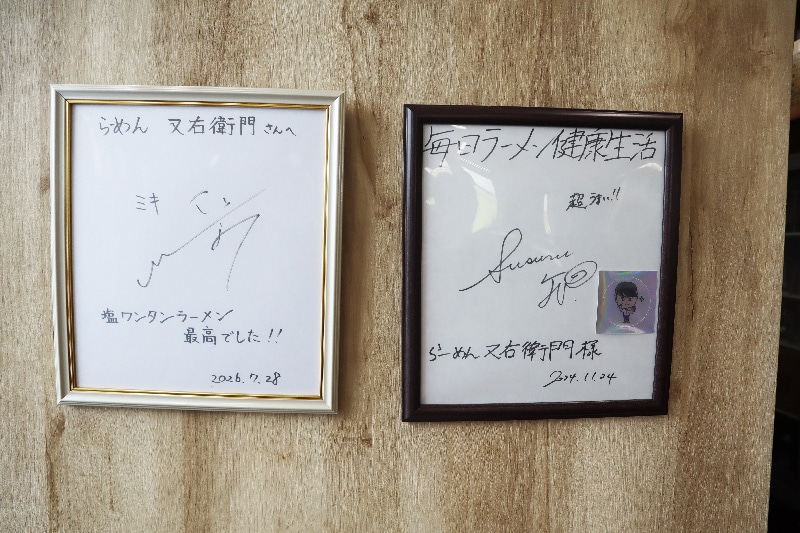 らーめん 又右衛門さんへ
ミキ
塩ワンタンラーメン
最高でした!!
2026.7.28
毎日ラーメン健康生活
超うまい!!
Susuru
TV.
らーめん 又右衛門様
2024.11.24